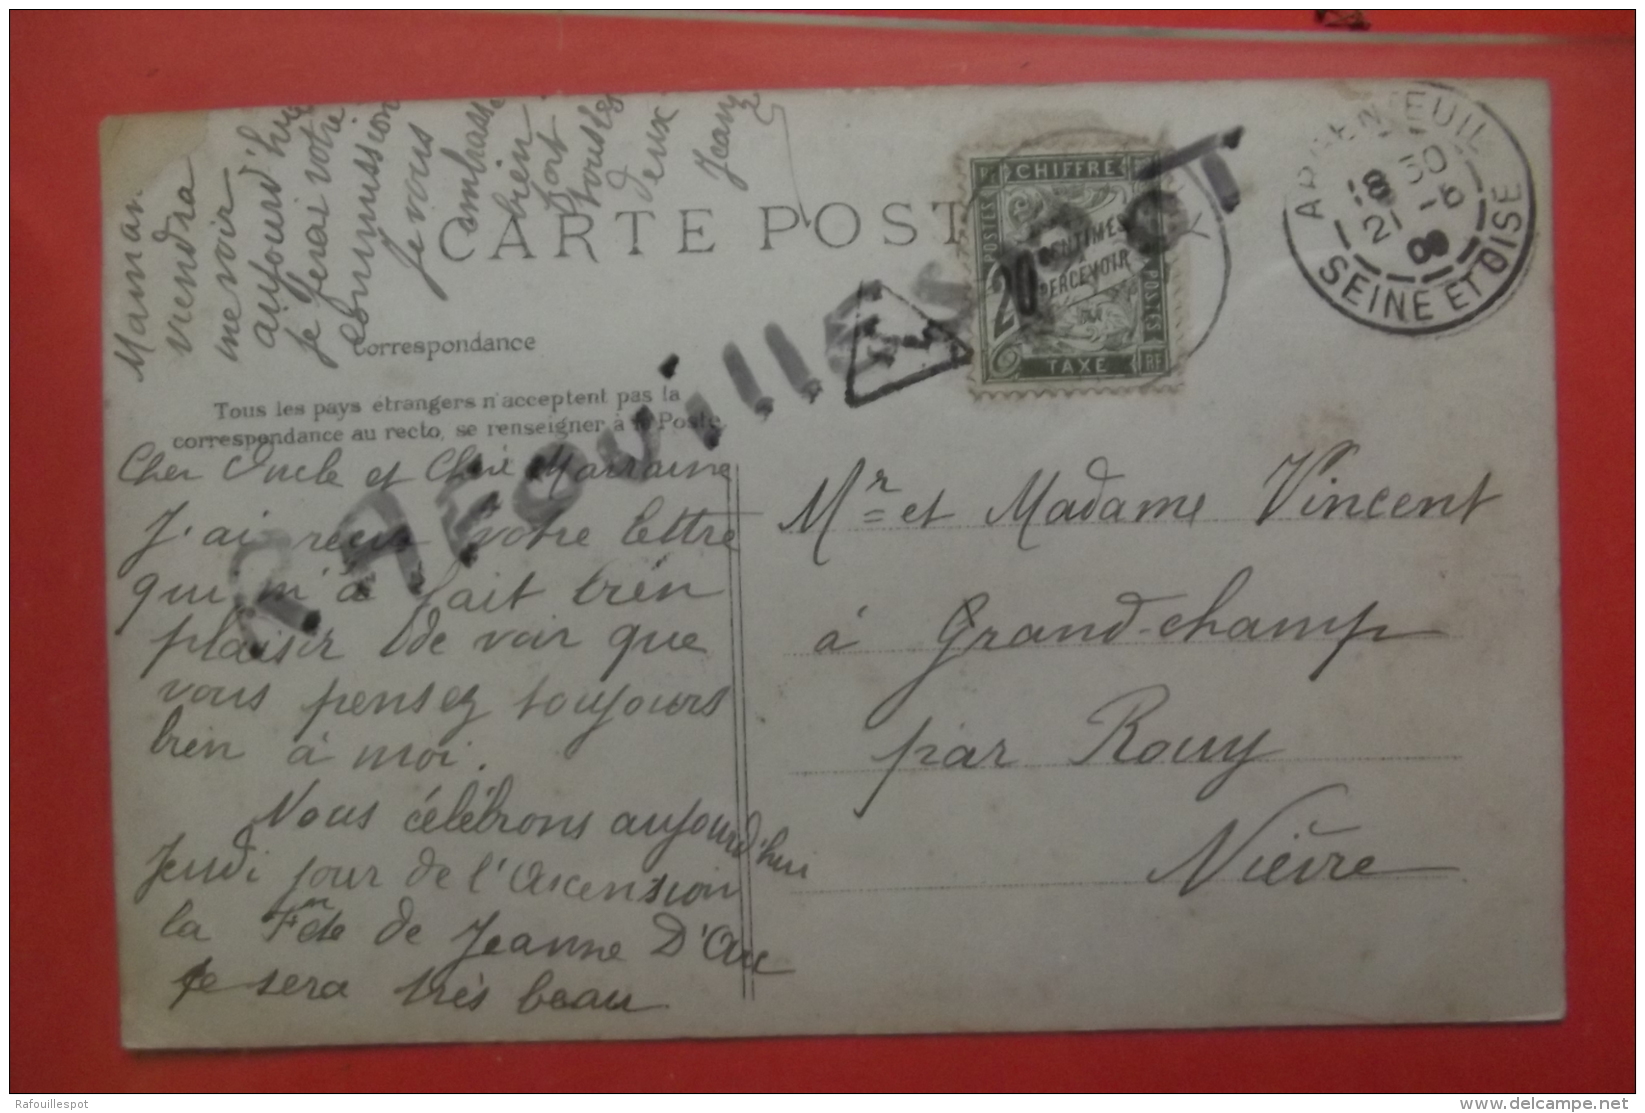 Maman
viendra
me voir
aujourd'hui
je ferai votre
commission
Je vous
embrasse
bien
fort
tous les
deux
Jean
CARTE POST
Correspondance
Tous les pays étrangers n'acceptent pas la
correspondance au recto, se renseigner à la Poste
Cher Oncle et Chère Marraine
J'ai reçu votre lettre
qui m'a fait bien
plaisir de voir que
vous pensez toujours
bien à moi.
Nous célébrons aujourd'hui
Jeudi jour de l'Ascension
la Fête de Jeanne D'Arc
ce sera très beau
RAFOUILLESPOT
T
RF CHIFFRE
POSTES
20 CENTIMES
A
PERCEVOIR
POSTES
TAXE RF
ARGENTEUIL
18 30
21 -5
09
SEINE ET OISE
Mr et Madame Vincent
à Grand-champ
par Rouy
Nièvre
Rafouillespot
delcampe.net